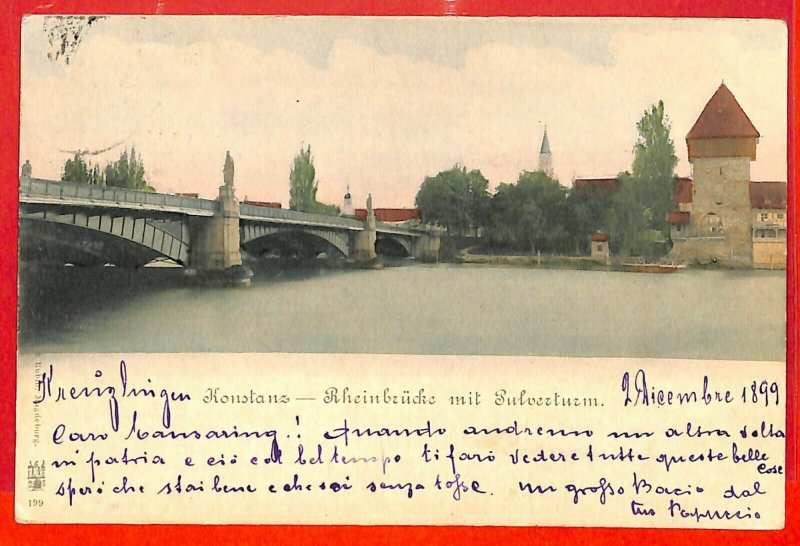 Kreuzlingen Konstanz — Rheinbrücke mit Pulverturm. 2 Dicembre 1899
Caro Mansaring.! Quando andremo un altra volta
in patria e ciò col bel tempo ti farò vedere tutte queste belle
cose
spero che stai bene e che sei senza tosse. un grosso Bacio dal
tuo
199